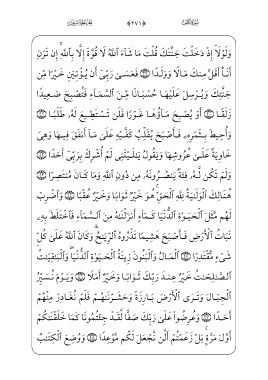 وَلَوْلَآ إِذْ دَخَلْتَ جَنَّتَكَ قُلْتَ مَا شَآءَ ٱللَّهُ لَا قُوَّةَ إِلَّا بِٱللَّهِ ۚ إِن تَرَنِ
أَنَا۠ أَقَلَّ مِنكَ مَالًا وَوَلَدًا ۝ فَعَسَىٰ رَبِّىٓ أَن يُؤْتِيَنِ خَيْرًا مِّن
جَنَّتِكَ وَيُرْسِلَ عَلَيْهَا حُسْبَانًا مِّنَ ٱلسَّمَآءِ فَتُصْبِحَ صَعِيدًا
زَلَقًا ۝ أَوْ يُصْبِحَ مَآؤُهَا غَوْرًا فَلَن تَسْتَطِيعَ لَهُۥ طَلَبًا ۝
وَأُحِيطَ بِثَمَرِهِۦ فَأَصْبَحَ يُقَلِّبُ كَفَّيْهِ عَلَىٰ مَآ أَنفَقَ فِيهَا وَهِىَ
خَاوِيَةٌ عَلَىٰ عُرُوشِهَا وَيَقُولُ يَٰلَيْتَنِى لَمْ أُشْرِكْ بِرَبِّىٓ أَحَدًا ۝
وَلَمْ تَكُن لَّهُۥ فِئَةٌ يَنصُرُونَهُۥ مِن دُونِ ٱللَّهِ وَمَا كَانَ مُنتَصِرًا ۝
هُنَالِكَ ٱلْوَلَٰيَةُ لِلَّهِ ٱلْحَقِّ ۚ هُوَ خَيْرٌ ثَوَابًا وَخَيْرٌ عُقْبًا ۝ وَٱضْرِبْ
لَهُم مَّثَلَ ٱلْحَيَوٰةِ ٱلدُّنْيَا كَمَآءٍ أَنزَلْنَٰهُ مِنَ ٱلسَّمَآءِ فَٱخْتَلَطَ بِهِۦ
نَبَاتُ ٱلْأَرْضِ فَأَصْبَحَ هَشِيمًا تَذْرُوهُ ٱلرِّيَٰحُ ۗ وَكَانَ ٱللَّهُ عَلَىٰ كُلِّ
شَىْءٍ مُّقْتَدِرًا ۝ ٱلْمَالُ وَٱلْبَنُونَ زِينَةُ ٱلْحَيَوٰةِ ٱلدُّنْيَا ۖ وَٱلْبَٰقِيَٰتُ
ٱلصَّٰلِحَٰتُ خَيْرٌ عِندَ رَبِّكَ ثَوَابًا وَخَيْرٌ أَمَلًا ۝ وَيَوْمَ نُسَيِّرُ
ٱلْجِبَالَ وَتَرَى ٱلْأَرْضَ بَارِزَةً وَحَشَرْنَٰهُمْ فَلَمْ نُغَادِرْ مِنْهُمْ
أَحَدًا ۝ وَعُرِضُوا۟ عَلَىٰ رَبِّكَ صَفًّا لَّقَدْ جِئْتُمُونَا كَمَا خَلَقْنَٰكُمْ
أَوَّلَ مَرَّةٍۭ ۚ بَلْ زَعَمْتُمْ أَلَّن نَّجْعَلَ لَكُم مَّوْعِدًا ۝ وَوُضِعَ ٱلْكِتَٰبُ